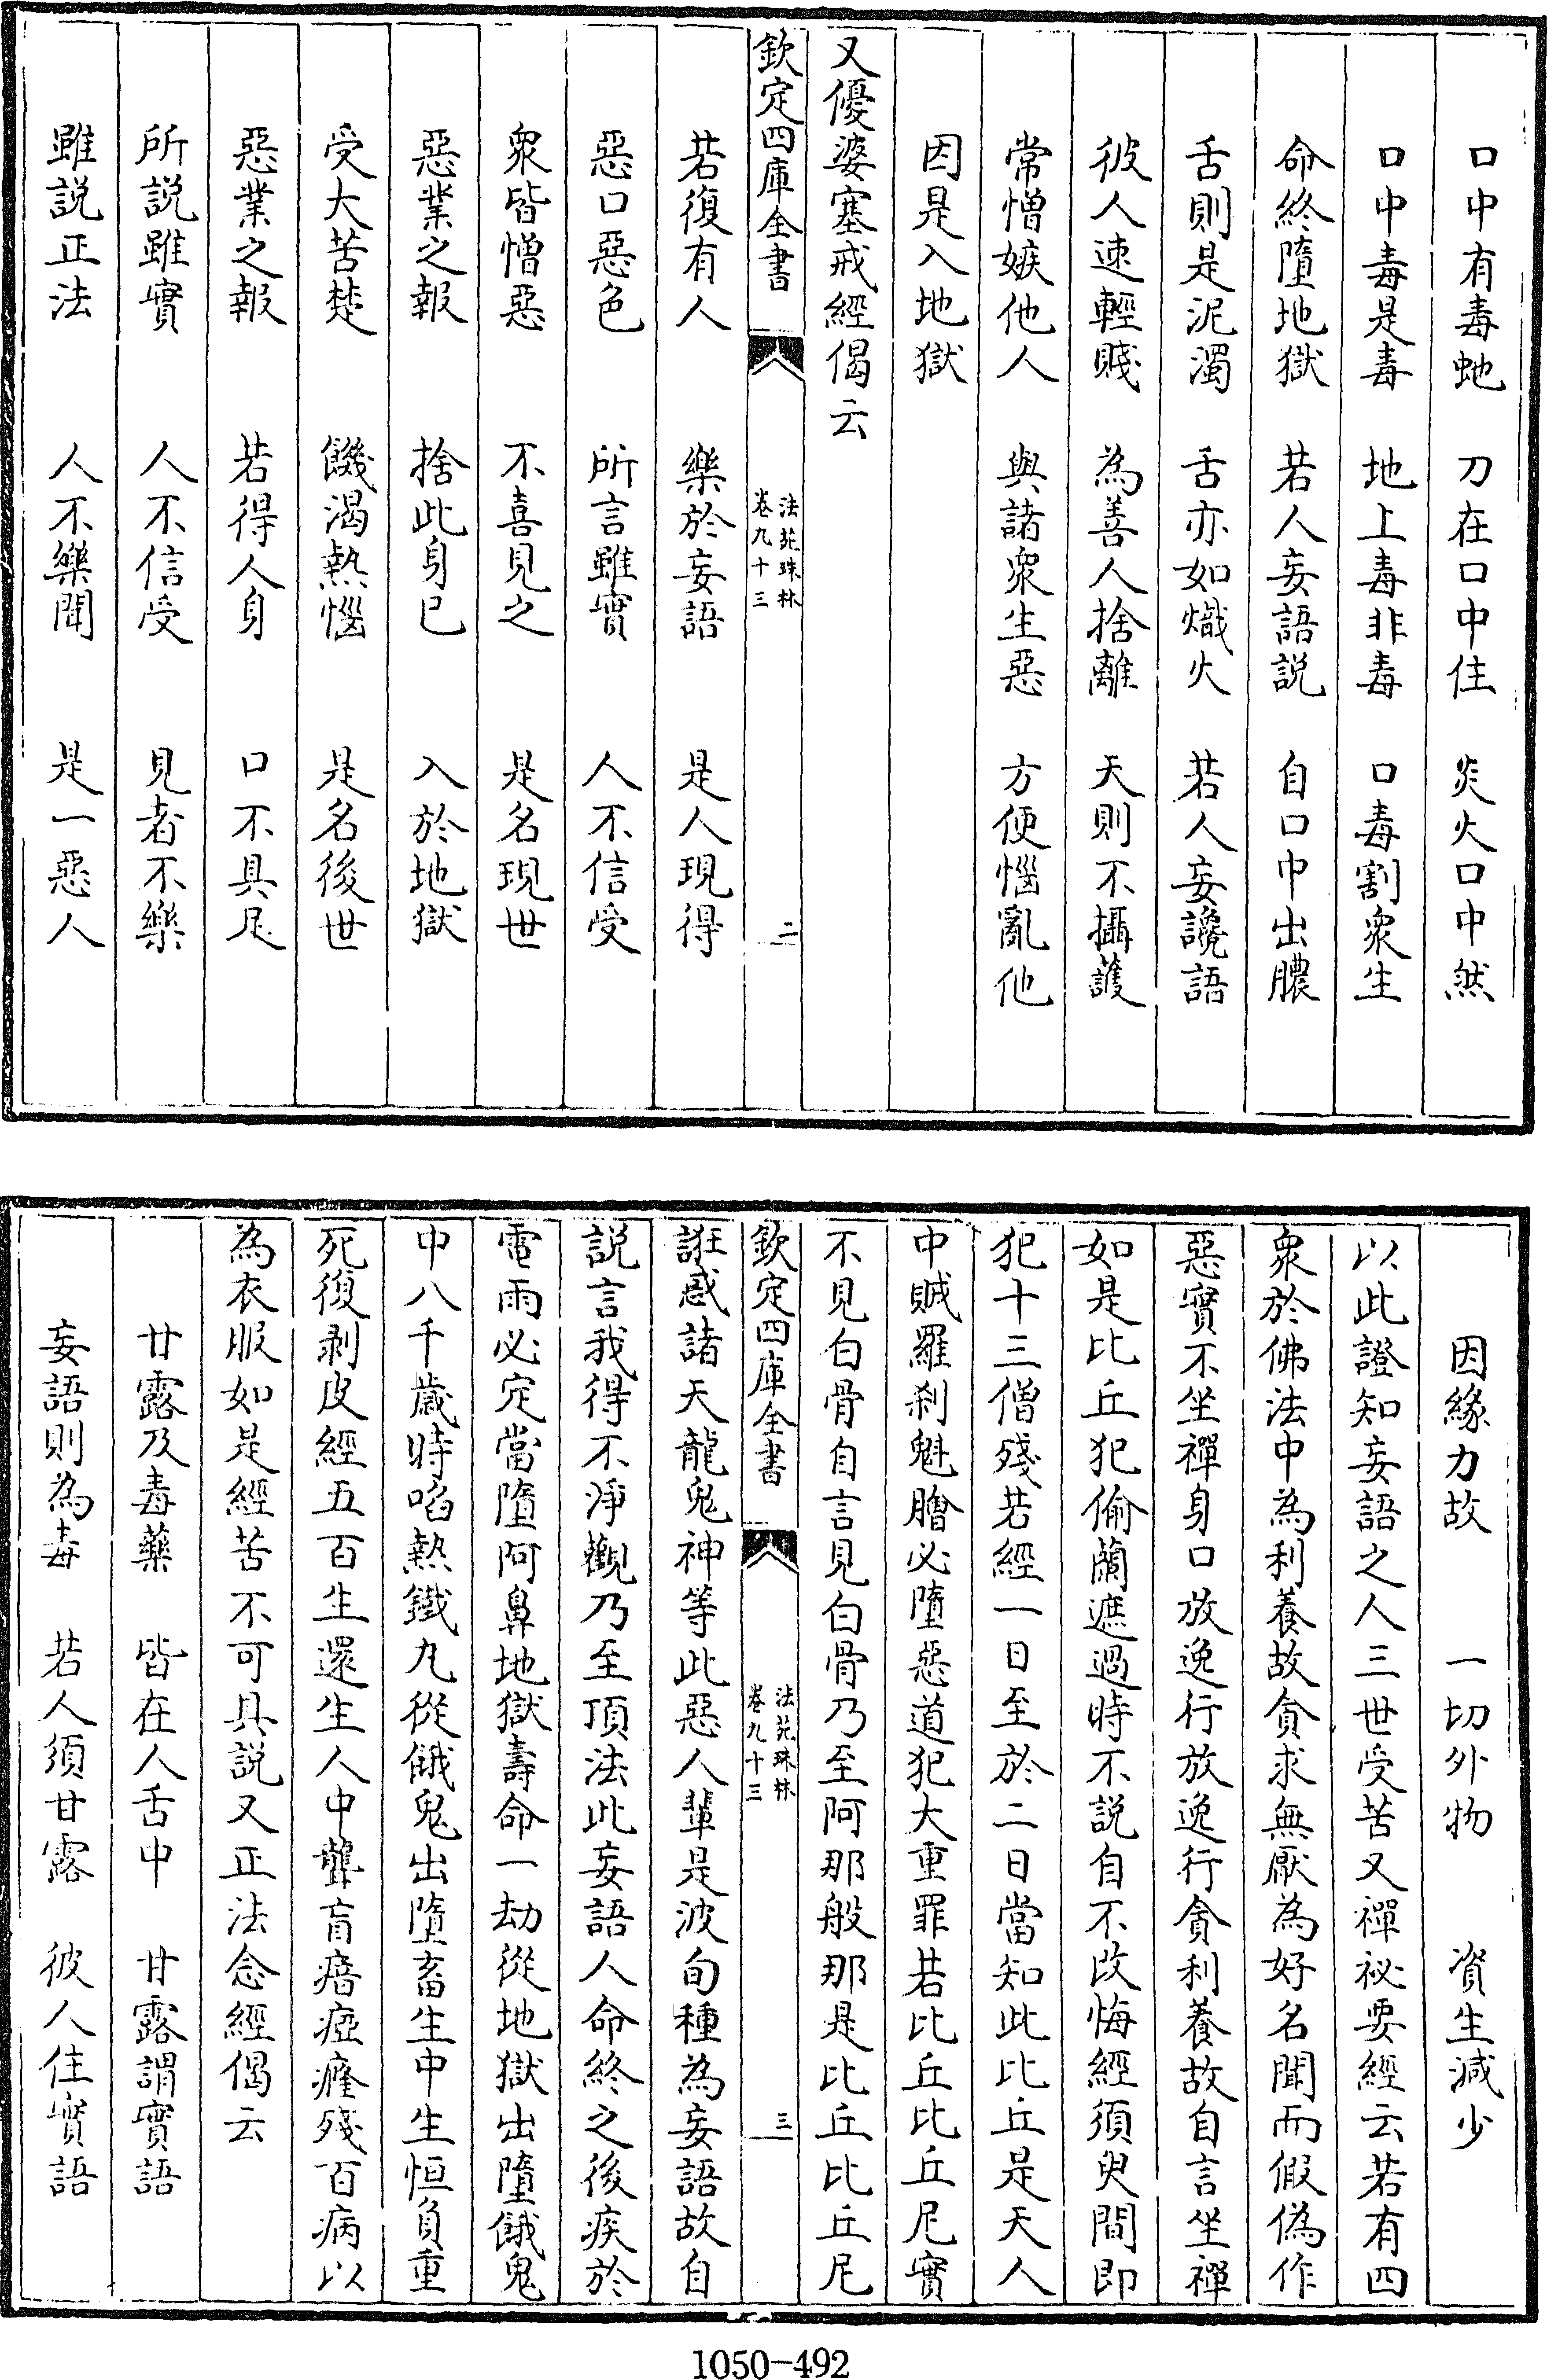 口中有毒虵　刀在口中住　炎火口中然
口中毒是毒　地上毒非毒　口毒割衆生
命終墮地獄　若人妄語説　自口中出膿
舌則是泥濁　舌亦如熾火　若人妄讒語
彼人速輕賤　為善人捨離　天則不攝護
常憎嫉他人　與諸衆生惡　方便惱亂他
因是入地獄
又優婆塞戒經偈云
欽定四庫全書　法苑珠林　卷九十三　二
若復有人　樂於妄語　是人現得
惡口惡色　所言雖實　人不信受
衆皆憎惡　不喜見之　是名現世
惡業之報　捨此身已　入於地獄
受大苦楚　饑渴熱惱　是名後世
惡業之報　若得人身　口不具足
所説雖實　人不信受　見者不樂
雖説正法　人不樂聞　是一惡人
因緣力故　一切外物　資生減少
以此證知妄語之人三世受苦又禪祕要經云若有四
衆於佛法中為利養故貪求無厭為好名聞而假偽作
惡實不坐禪身口放逸行放逸行貪利養故自言坐禪
如是比丘犯偷蘭遮過時不説自不改悔經須臾間即
犯十三僧殘若經一日至於二日當知此比丘是天人
中賊羅刹魁膾必墮惡道犯大重罪若比丘比丘尼實
不見白骨自言見白骨乃至阿那般那是比丘比丘尼
欽定四庫全書　法苑珠林　卷九十三　三
誑惑諸天龍鬼神等此惡人輩是波旬種為妄語故自
説言我得不淨觀乃至頂法此妄語人命終之後疾於
電雨必定當墮阿鼻地獄壽命一劫從地獄出墮餓鬼
中八千歲時啗熱鐵丸從餓鬼出墮畜生中生恒負重
死復剥皮經五百生還生人中聾盲瘖瘂癃殘百病以
為衣服如是經苦不可具説又正法念經偈云
甘露及毒藥　皆在人舌中　甘露謂實語
妄語則為毒　若人須甘露　彼人住實語
1050-492